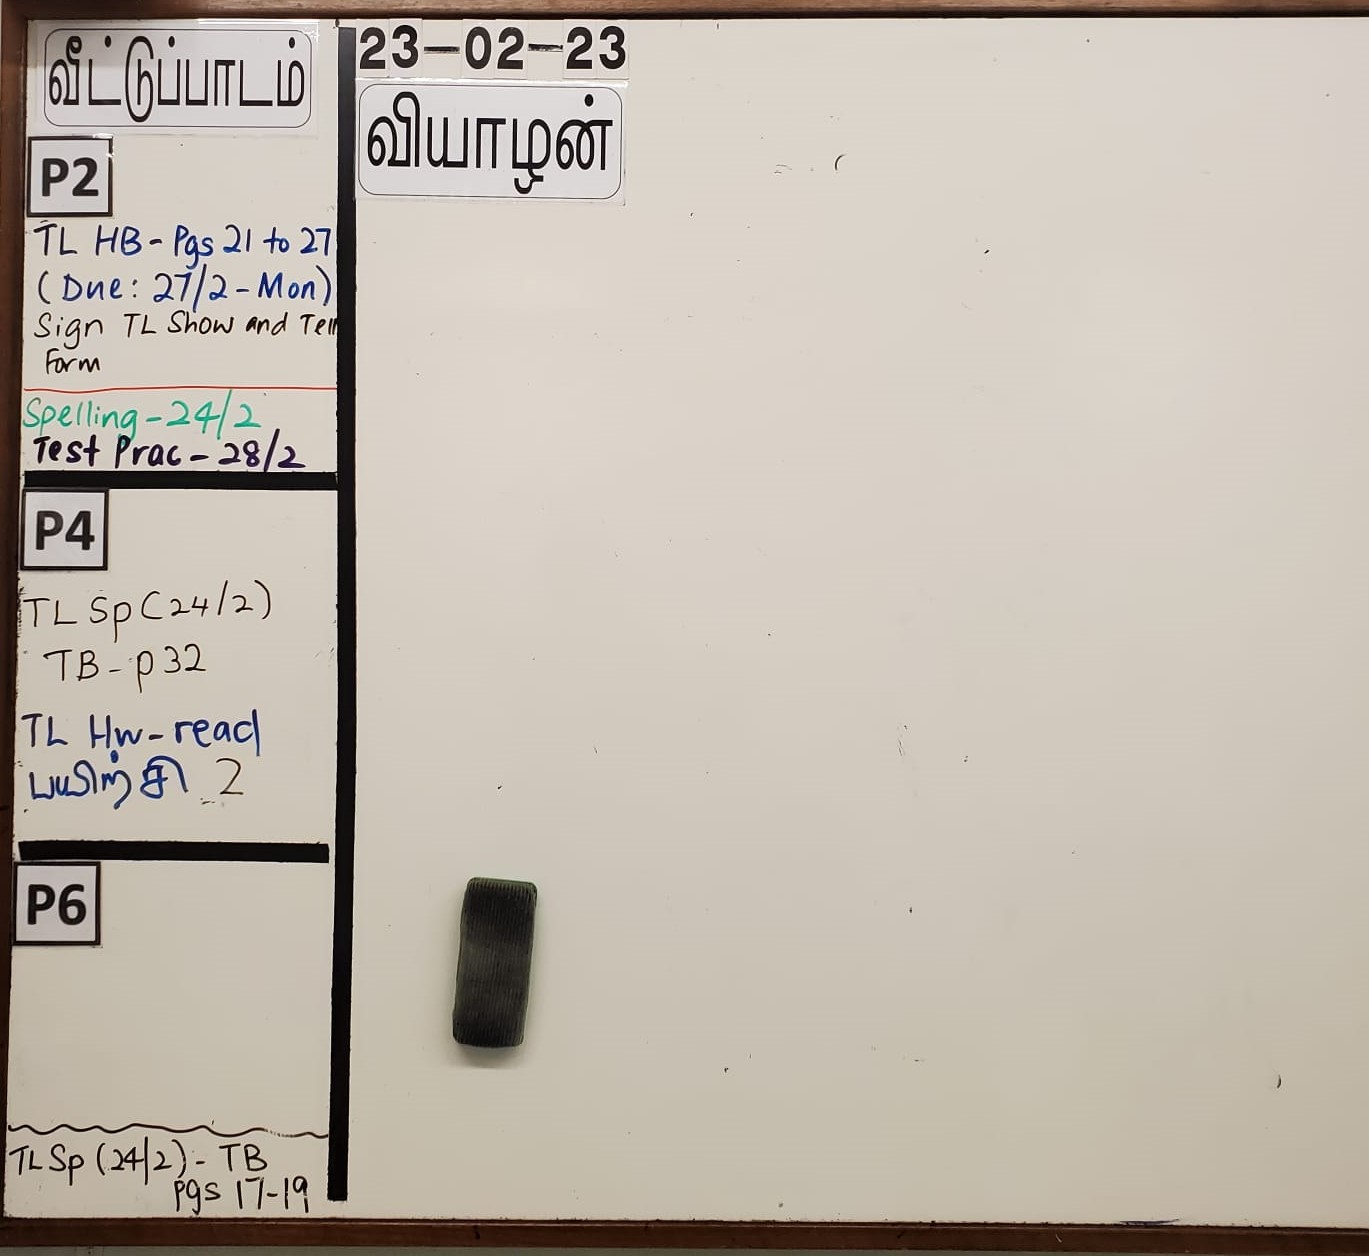 வீட்டுப்பாடம்
23-02-23
வியாழன்
P2
TL HB - Pgs 21 to 27
(Due: 27/2 - Mon)
Sign TL Show and Tell
Form
Spelling - 24/2
Test Prac - 28/2
P4
TL Sp (24/2)
TB - p 32
TL Hw - read
பயிற்சி 2
P6
TL Sp (24/2) - TB
Pgs 17-19